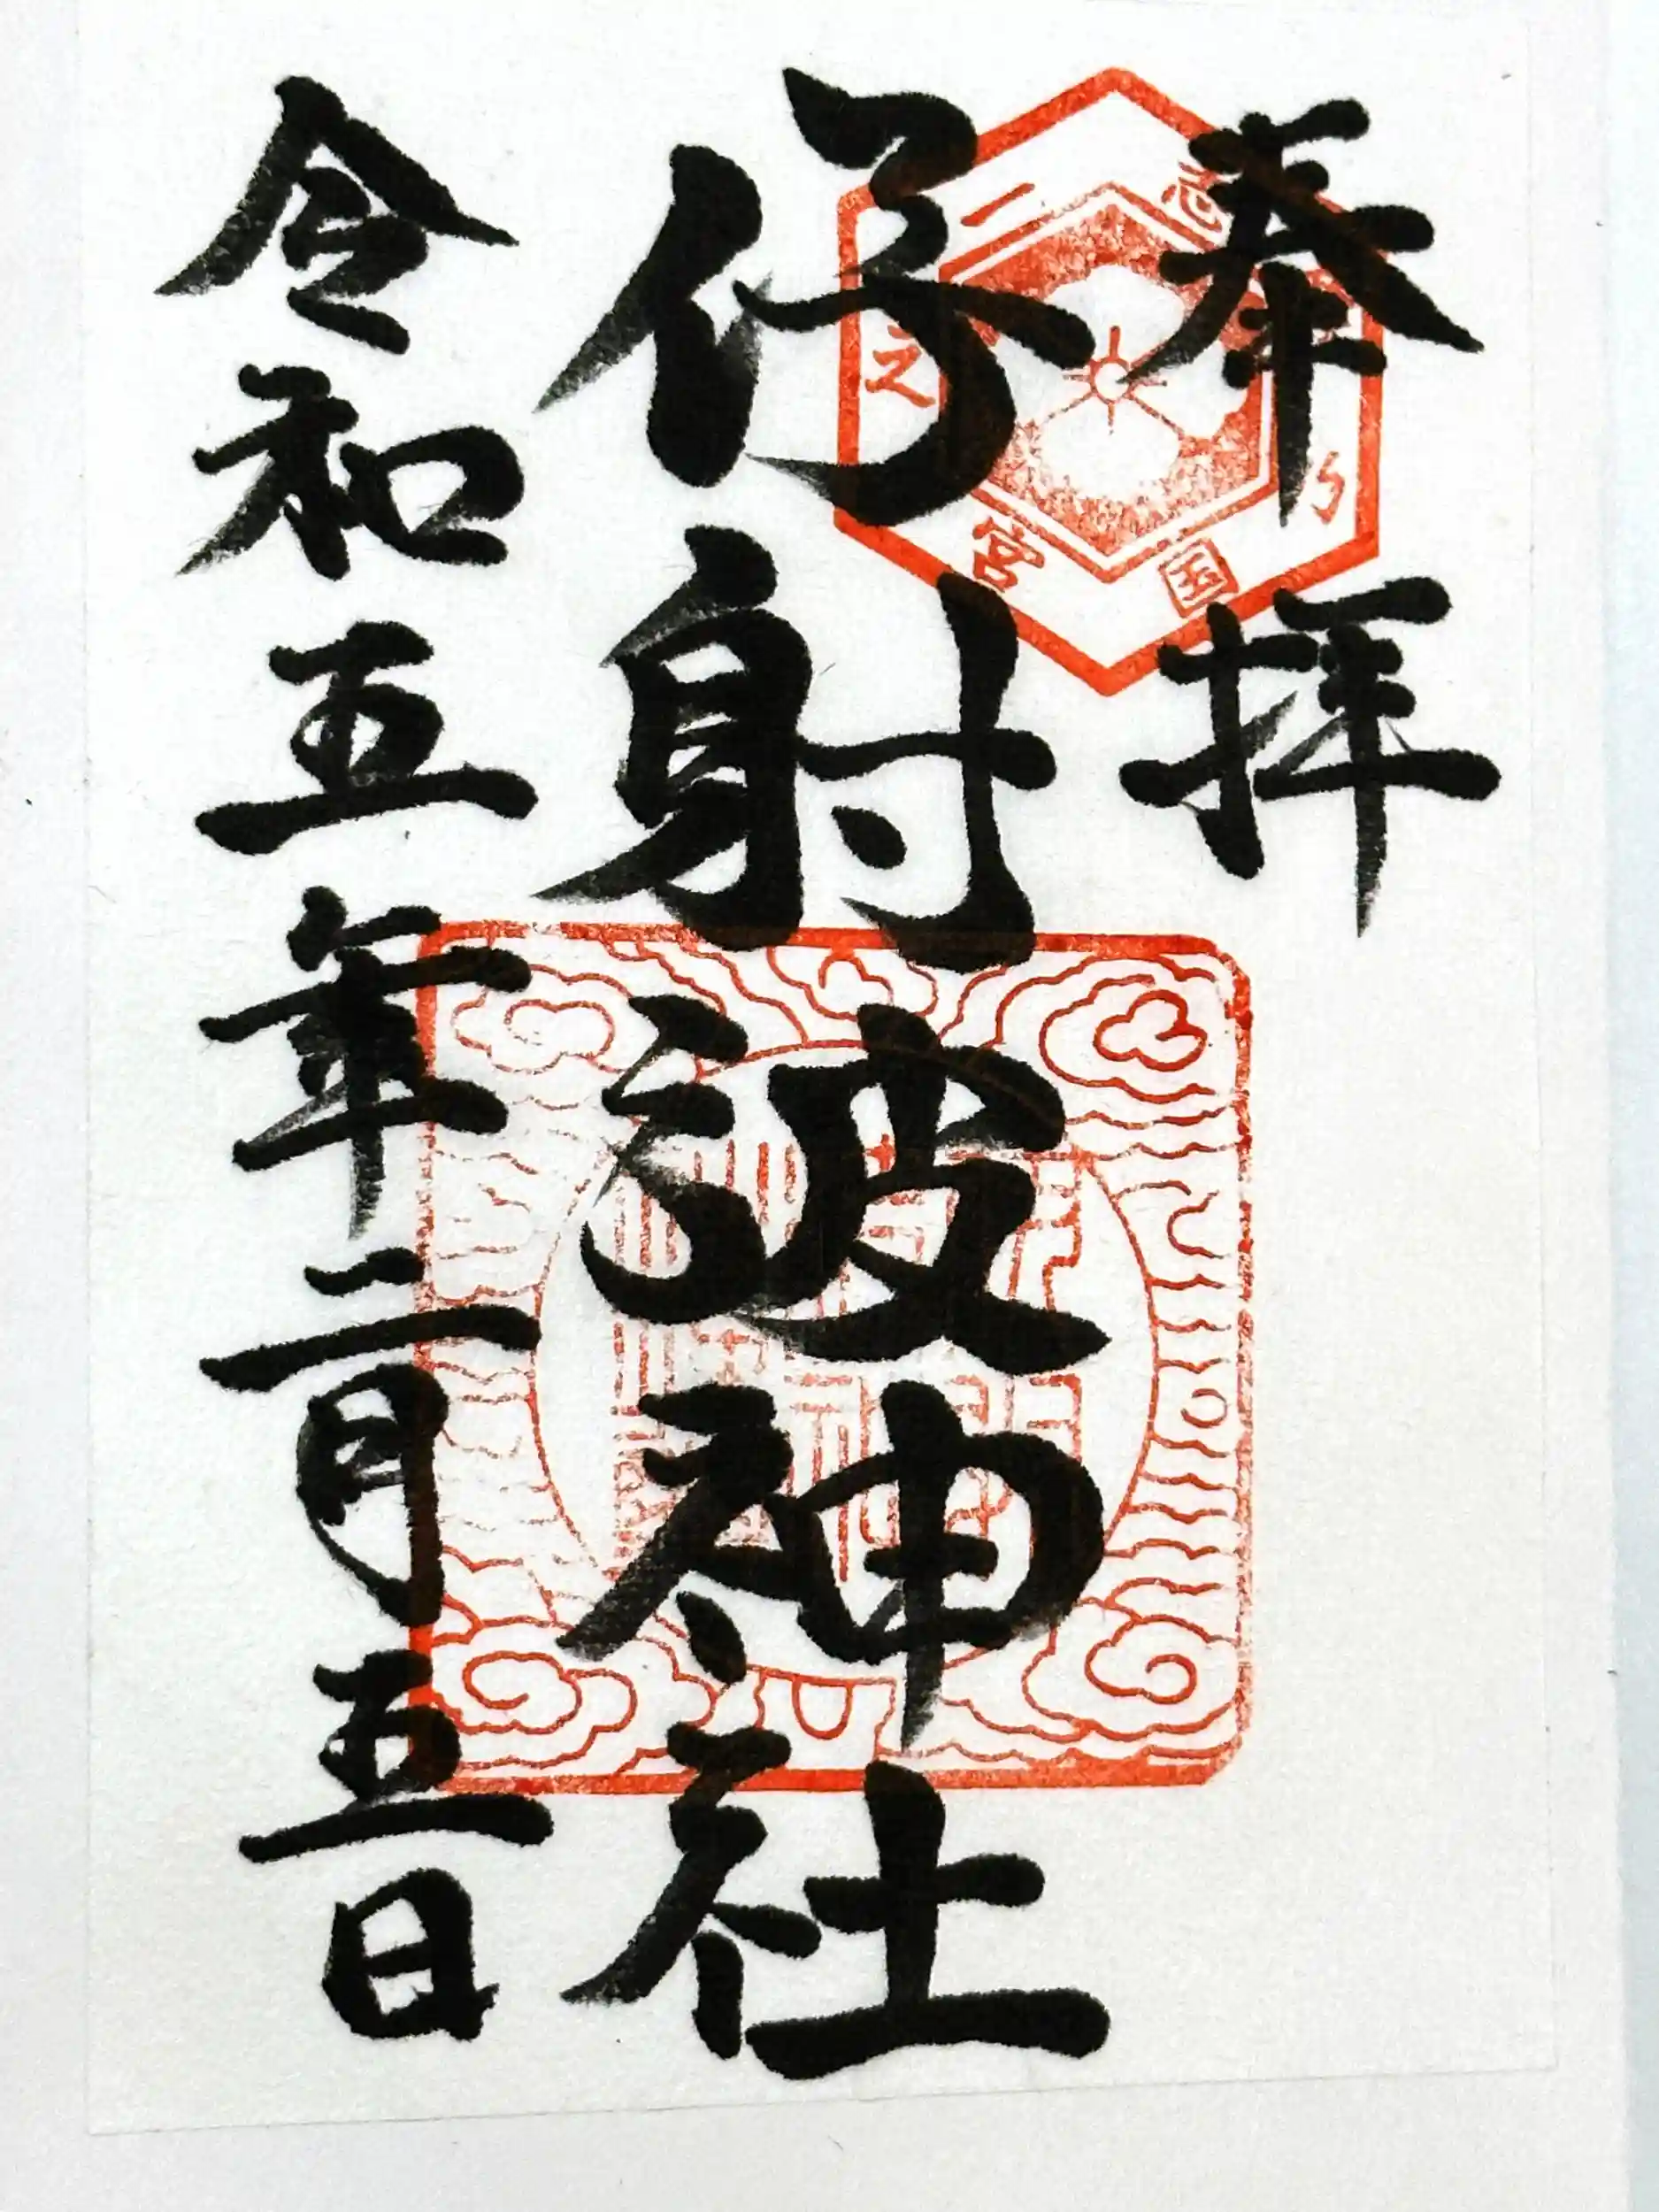 奉拝
国一之宮
伊射波神社
令和五年二月五日